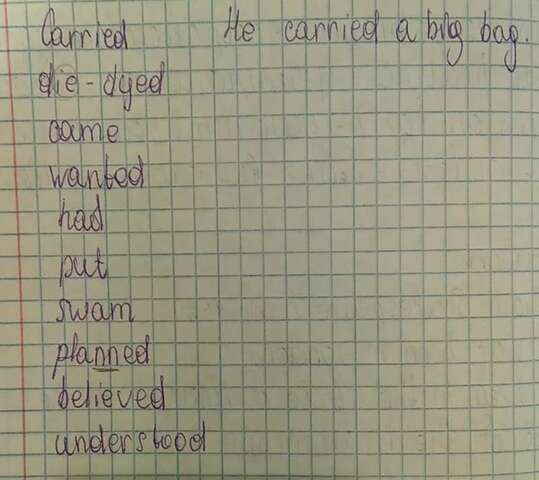 Carried He carried a big bag.
die - dyed
came
wanted
had
put
swam
planned
believed
understood